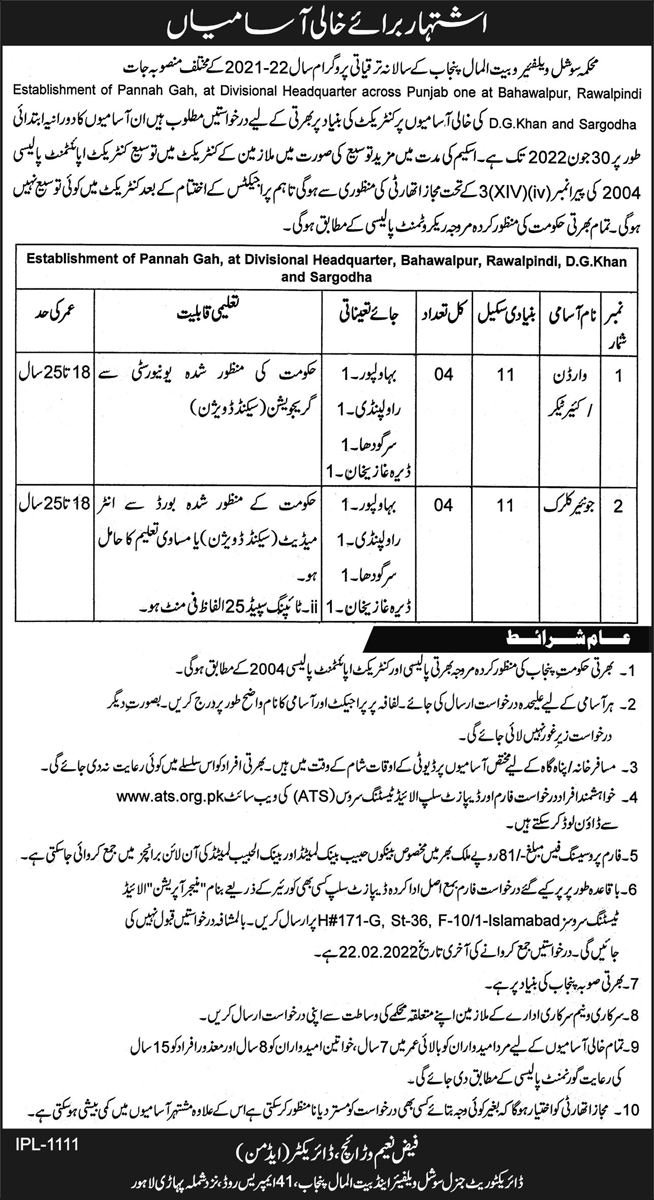 اشتہار برائے خالی آسامیاں
محکمہ سوشل ویلفیئر و بیت المال پنجاب کے سالانہ ترقیاتی پروگرام سال 22-2021 کے مختلف منصوبہ جات
Establishment of Pannah Gah, at Divisional Headquarter across Punjab one at Bahawalpur, Rawalpindi
D.G.Khan and Sargodha کی خالی آسامیوں پر کنٹریکٹ کی بنیاد پر بھرتی کے لیے درخواستیں مطلوب ہیں ان آسامیوں کا دورانیہ ابتدائی
طور پر 30 جون 2022 تک ہے۔ اسکیم کی مدت میں مزید توسیع کی صورت میں ملازمین کے کنٹریکٹ میں توسیع کنٹریکٹ اپائنٹمنٹ پالیسی
2004 کی پیرا نمبر 3(XIV)(iv) کے تحت مجاز اتھارٹی کی منظوری سے ہوگی تاہم پراجیکٹس کے اختتام کے بعد کنٹریکٹ میں کوئی توسیع نہیں
ہوگی۔ تمام بھرتی حکومت کی منظور کردہ مروجہ ریکروٹمنٹ پالیسی کے مطابق ہوگی۔
Establishment of Pannah Gah, at Divisional Headquarter, Bahawalpur, Rawalpindi, D.G.Khan
and Sargodha
نمبر شمار نام آسامی بنیادی سکیل کل تعداد جائے تعیناتی تعلیمی قابلیت عمر کی حد
1 وارڈن 11 04 بہاولپور۔1 حکومت کی منظور شدہ یونیورسٹی سے 18 تا 25 سال
/ کئیر ٹیکر راولپنڈی۔1 گریجویشن (سیکنڈ ڈویژن)
سرگودھا۔1
ڈیرہ غازیخان۔1
2 جونیئر کلرک 11 04 بہاولپور۔1 حکومت کے منظور شدہ بورڈ سے انٹر 18 تا 25 سال
راولپنڈی۔1 میڈیٹ (سیکنڈ ڈویژن) یا مساوی تعلیم کا حامل
سرگودھا۔1 ہو۔
ڈیرہ غازیخان۔1 ii۔ ٹائپنگ سپیڈ 25 الفاظ فی منٹ ہو۔
عام شرائط
1۔ بھرتی حکومت پنجاب کی منظور کردہ مروجہ بھرتی پالیسی اور کنٹریکٹ اپائنٹمنٹ پالیسی 2004 کے مطابق ہوگی۔
2۔ ہر آسامی کے لیے علیحدہ درخواست ارسال کی جائے۔ لفافہ پر پراجیکٹ اور آسامی کا نام واضح طور پر درج کریں۔ بصورت دیگر
درخواست زیر غور نہیں لائی جائے گی۔
3۔ مسافر خانہ / پناہ گاہ کے لیے مختص آسامیوں پر ڈیوٹی کے اوقات شام کے وقت میں ہیں۔ بھرتی افراد کو اس سلسلے میں کوئی رعایت نہ دی جائے گی۔
4۔ خواہشمند افراد درخواست فارم اور ڈیپازٹ سلپ الائیڈ ٹیسٹنگ سروس (ATS) کی ویب سائٹ www.ats.org.pk
سے ڈاؤن لوڈ کر سکتے ہیں۔
5۔ فارم پروسیسنگ فیس مبلغ -/81 روپے ملک بھر میں مخصوص بینکوں حبیب بینک لمیٹڈ اور بینک الحبیب لمیٹڈ کی آن لائن برانچز میں جمع کروائی جا سکتی ہے۔
6۔ باقاعدہ طور پر پر کیے گئے درخواست فارم بمع اصل ادا کردہ ڈیپازٹ سلپ کسی بھی کورئیر کے ذریعے بنام "منیجر آپریشن" الائیڈ
ٹیسٹنگ سروسز H#171-G, St-36, F-10/1-Islamabad پر ارسال کریں۔ بالمشافہ درخواستیں قبول نہیں کی
جائیں گی۔ درخواستیں جمع کروانے کی آخری تاریخ 22.02.2022 ہے۔
7۔ بھرتی صوبہ پنجاب کی بنیاد پر ہے۔
8۔ سرکاری و نیم سرکاری ادارے کے ملازمین اپنے متعلقہ محکمے کی وساطت سے اپنی درخواست ارسال کریں۔
9۔ تمام خالی آسامیوں کے لیے مرد امیدواران کو بالائی عمر میں 7 سال، خواتین امیدواران کو 8 سال اور معذور افراد کو 15 سال
کی رعایت گورنمنٹ پالیسی کے مطابق دی جائے گی۔
10۔ مجاز اتھارٹی کو اختیار ہوگا کہ بغیر کوئی وجہ بتائے کسی بھی درخواست کو مسترد یا نامنظور کر سکتی ہے اس کے علاوہ مشتہر آسامیوں میں کمی بیشی ہو سکتی ہے۔
IPL-1111
فیض نعیم وڑائچ، ڈائریکٹر (ایڈمن)
ڈائریکٹوریٹ جنرل سوشل ویلفیئر اینڈ بیت المال پنجاب، 41 ایمپریس روڈ، نزد شملہ پہاڑی لاہور